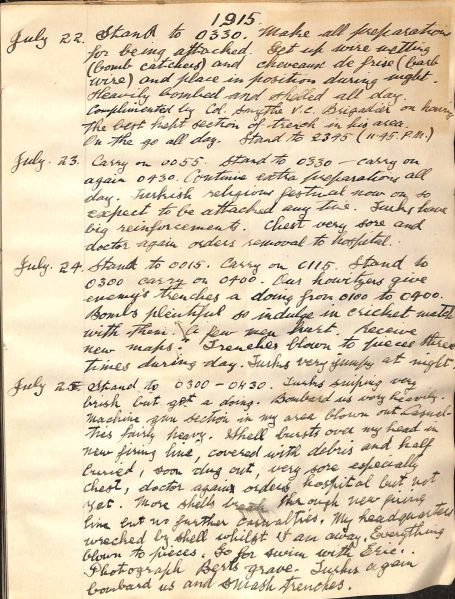 1915.
July 22. Stand to 0330. Make all preparation
for being attacked. Get up wire netting
(bomb catchers) and cheveaux de frise (barb
wire) and place in position during night.
Heavily bombed and shelled all day.
Complimented by Col. Smythe V.C. Brigadier on having
the best kept section of trench in his area.
On the go all day. Stand to 2345 (11.45.P.M.)
July. 23. Carry on 0055. Stand to 0330 - carry on
again 0430. Continue extra preparations all
day. Turkish religious festival now on so
expect to be attacked any time. Turks have
big reinforcements. Chest very sore and
doctor again orders removal to hospital.
July. 24. Stand to 0015. Carry on 0115. Stand to
0300 carry on 0400. Our howitzers give
enemy's trenches a doing from 0100 to 0400.
Bombs plentiful so indulge in cricket match
with them. A few men hurt. Receive
new maps. Trenches blown to pieces three
times during day. Turks very jumpy at night.
July 25 Stand to 0300 - 0430. Turks sniping very
brisk but get a doing. Bombard us very heavily.
Machine gun section in my area blown out casual-
ties fairly heavy. Shell bursts over my head in
new firing line, covered with debris and half
buried, soon dug out, very sore especially
chest, doctor again orders hospital but not
yet. More shells break through new firing
line but no further casualties. My headquarters
wrecked by shell whilst I am away. Everything
blown to pieces. Go for swim with Eric.
Photograph Berts grave. Turks again
bombard us and smash trenches.